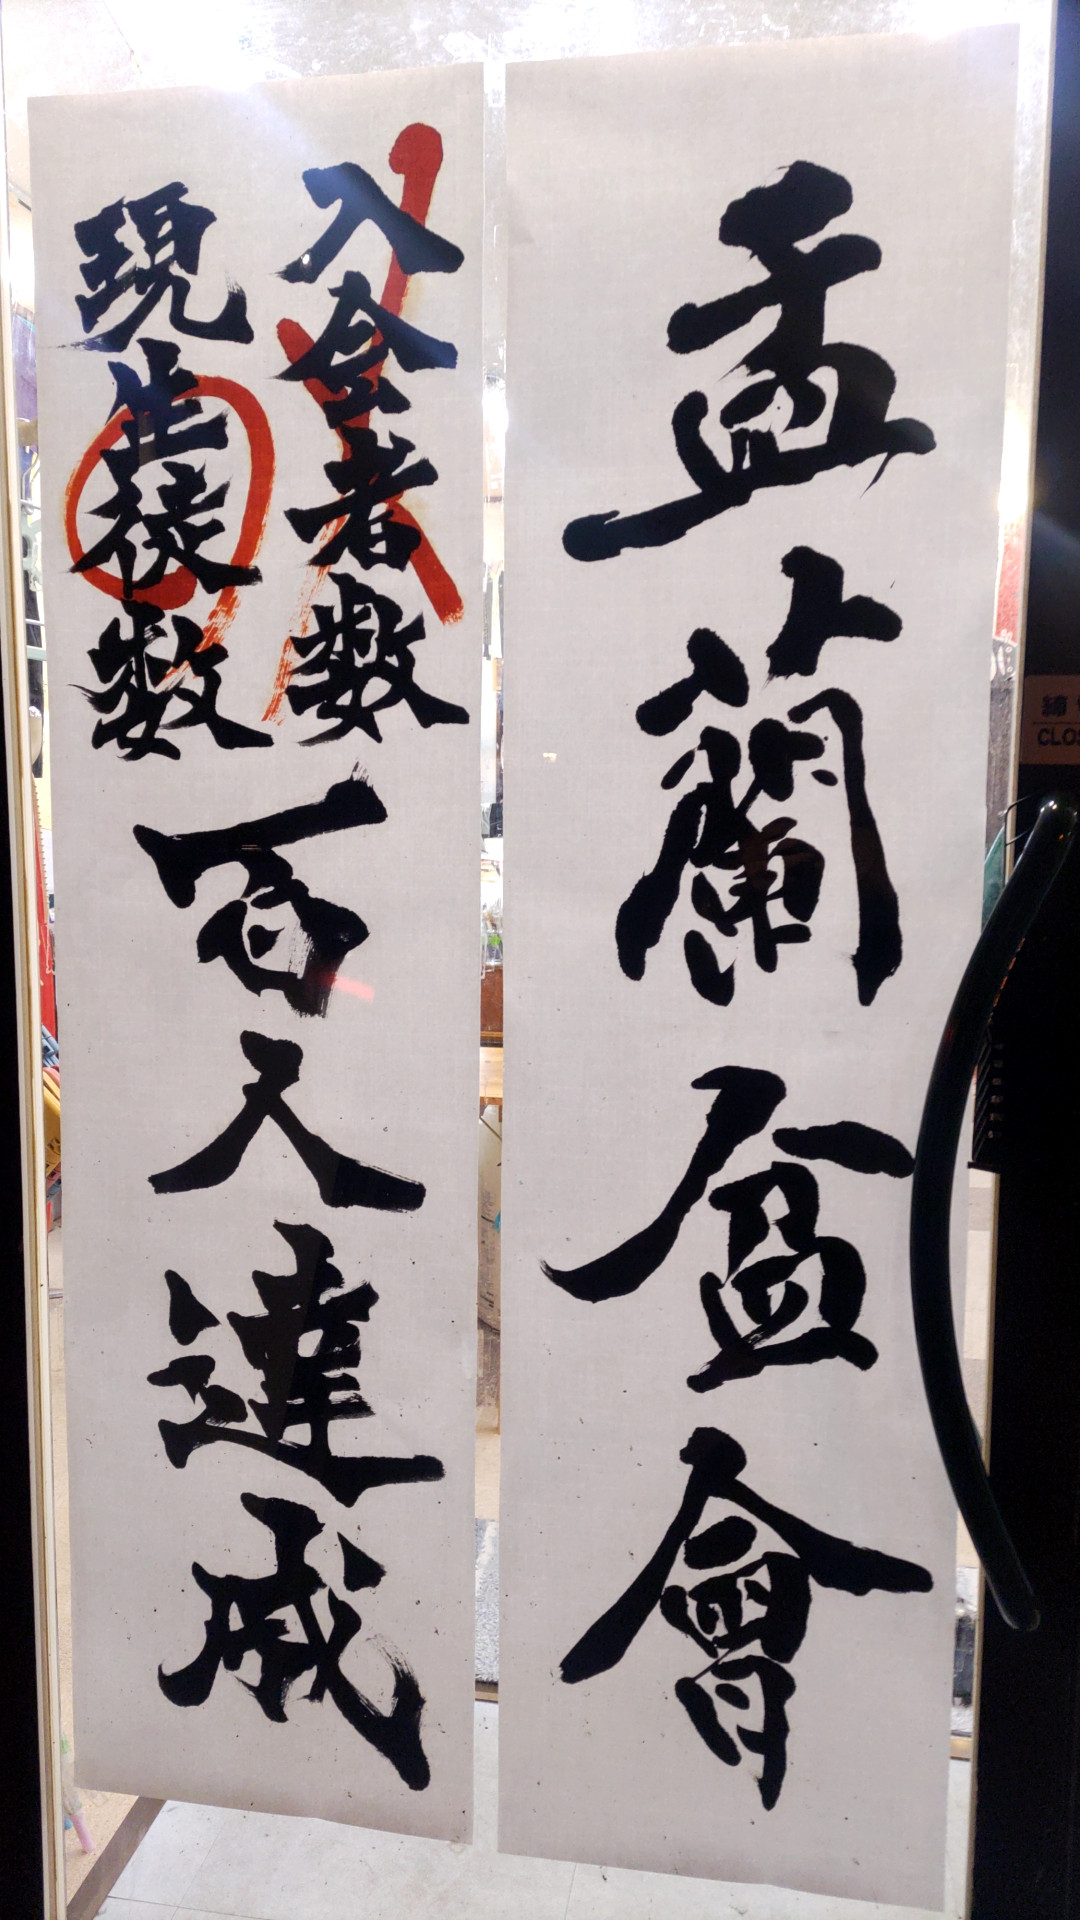 盂蘭盆會
入会者数
現生徒数
百人達成
締
CLOS